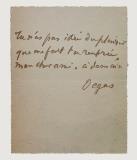 Tu n'as pas idée du plaisir
que me fait ta
mon cher ami, à demain
Degas